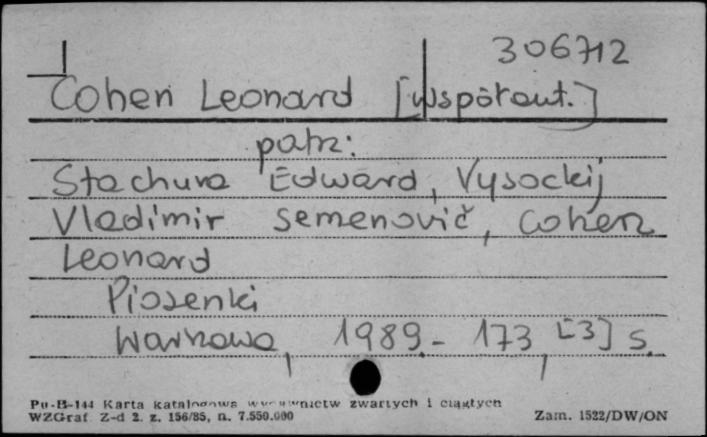 306712
Cohen Leonard [współaut.]
patrz:
Stachura Edward, Vysockij
Vladimir Semenovič, Cohen
Leonard
Piosenki
Warszawa, 1989.- 173, [3] s.
Pu-B-144 Karta katalogowa wydawnictw zwartych i ciągłych
WZGraf. Z-d 2. z. 156/85, n. 7.550.000 Zam. 1522/DW/ON